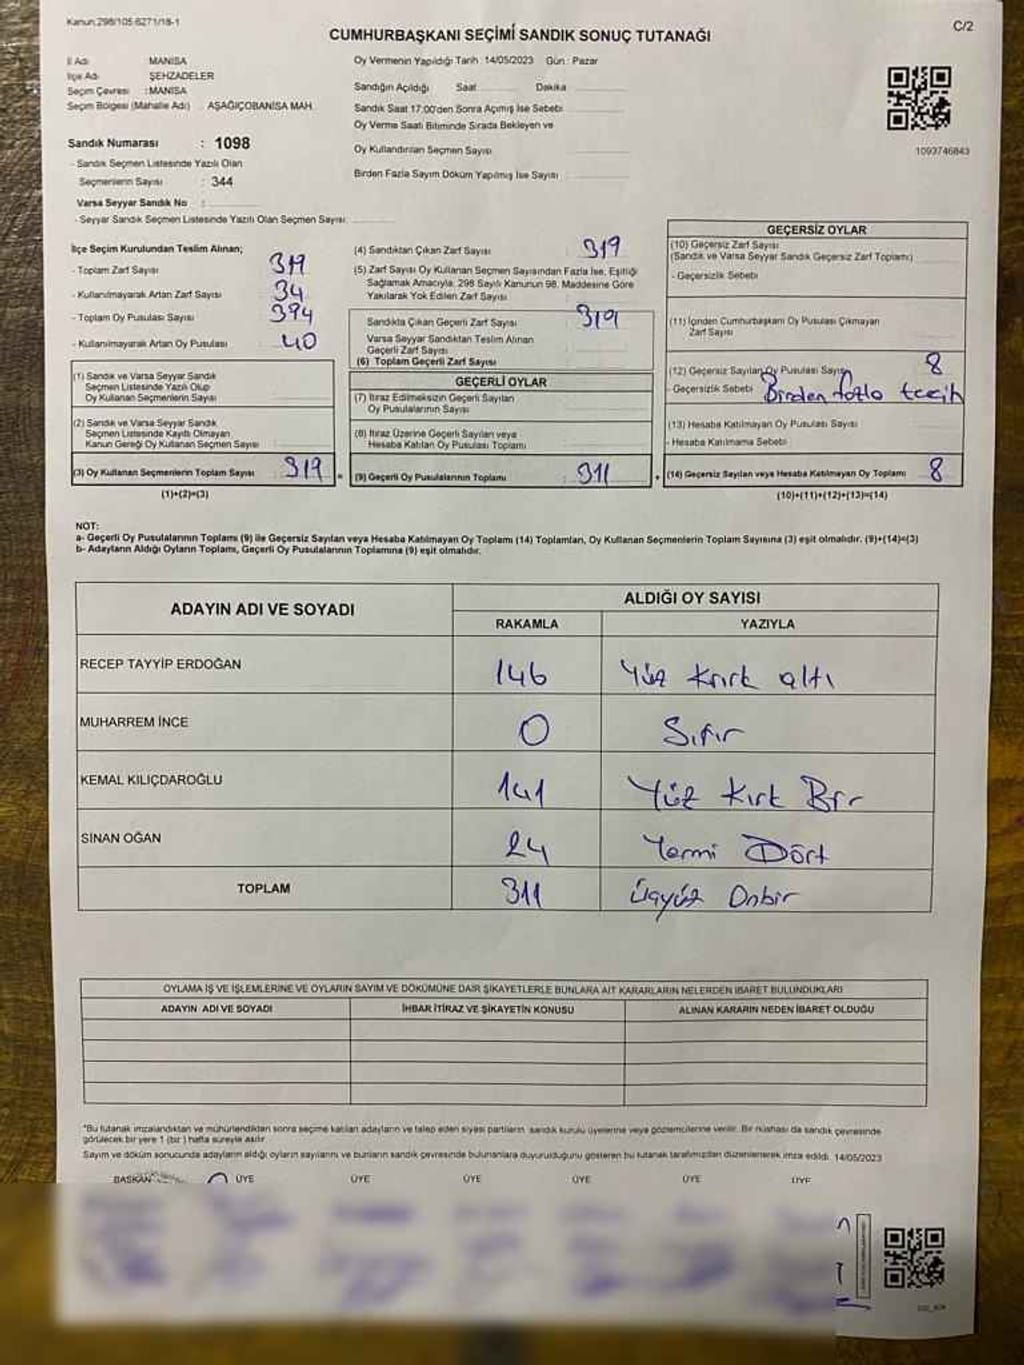 Kanun:298/105-6271/18-1
C/2
CUMHURBAŞKANI SEÇİMİ SANDIK SONUÇ TUTANAĞI
İl Adı MANİSA
İlçe Adı ŞEHZADELER
Seçim Çevresi : MANİSA
Seçim Bölgesi (Mahalle Adı) AŞAĞIÇOBANİSA MAH.
Sandık Numarası : 1098
- Sandık Seçmen Listesinde Yazılı Olan
Seçmenlerin Sayısı : 344
Varsa Seyyar Sandık No :
- Seyyar Sandık Seçmen Listesinde Yazılı Olan Seçmen Sayısı:
Oy Vermenin Yapıldığı Tarih : 14/05/2023 Gün : Pazar
Sandığın Açıldığı Saat Dakika
Sandık Saat 17:00'den Sonra Açımış İse Sebebi
Oy Verme Saati Bitiminde Sırada Bekleyen ve
Oy Kullandırılan Seçmen Sayısı
Birden Fazla Sayım Döküm Yapılmış İse Sayısı :
1093746843
İlçe Seçim Kurulundan Teslim Alınan;
- Toplam Zarf Sayısı 319
- Kullanılmayarak Artan Zarf Sayısı 34
- Toplam Oy Pusulası Sayısı 394
- Kullanılmayarak Artan Oy Pusulası 40
(1) Sandık ve Varsa Seyyar Sandık
Seçmen Listesinde Yazılı Olup
Oy Kullanan Seçmenlerin Sayısı
(2) Sandık ve Varsa Seyyar Sandık
Seçmen Listesinde Kayıtlı Olmayan
Kanun Gereği Oy Kullanan Seçmen Sayısı
(3) Oy Kullanan Seçmenlerin Toplam Sayısı 319 =
(1)+(2)=(3)
(4) Sandıktan Çıkan Zarf Sayısı 319
(5) Zarf Sayısı Oy Kullanan Seçmen Sayısından Fazla İse, Eşitliği
Sağlamak Amacıyla, 298 Sayılı Kanunun 98. Maddesine Göre
Yakılarak Yok Edilen Zarf Sayısı
Sandıkta Çıkan Geçerli Zarf Sayısı 319
Varsa Seyyar Sandıktan Teslim Alınan
Geçerli Zarf Sayısı
(6) Toplam Geçerli Zarf Sayısı
GEÇERLİ OYLAR
(7) İtiraz Edilmeksizin Geçerli Sayılan
Oy Pusulalarının Sayısı
(8) İtiraz Üzerine Geçerli Sayılan veya
Hesaba Katılan Oy Pusulası Toplamı
(9) Geçerli Oy Pusulalarının Toplamı 311 +
GEÇERSİZ OYLAR
(10) Geçersiz Zarf Sayısı
(Sandık ve Varsa Seyyar Sandık Geçersiz Zarf Toplamı)
- Geçersizlik Sebebi
(11) İçinden Cumhurbaşkanı Oy Pusulası Çıkmayan
Zarf Sayısı
(12) Geçersiz Sayılan Oy Pusulası Sayısı 8
- Geçersizlik Sebebi Birden fazla tecih
(13) Hesaba Katılmayan Oy Pusulası Sayısı
- Hesaba Katılmama Sebebi
(14) Geçersiz Sayılan veya Hesaba Katılmayan Oy Toplamı 8
(10)+(11)+(12)+(13)=(14)
NOT:
a- Geçerli Oy Pusulalarının Toplamı (9) ile Geçersiz Sayılan veya Hesaba Katılmayan Oy Toplamı (14) Toplamları, Oy Kullanan Seçmenlerin Toplam Sayısına (3) eşit olmalıdır. (9)+(14)=(3)
b- Adayların Aldığı Oyların Toplamı, Geçerli Oy Pusulalarının Toplamına (9) eşit olmalıdır.
ADAYIN ADI VE SOYADI
ALDIĞI OY SAYISI
RAKAMLA YAZIYLA
RECEP TAYYİP ERDOĞAN 146 Yüz Kırk altı
MUHARREM İNCE 0 Sıfır
KEMAL KILIÇDAROĞLU 141 Yüz Kırk Bir
SİNAN OĞAN 24 Yirmi Dört
TOPLAM 311 Üçyüz Onbir
OYLAMA İŞ VE İŞLEMLERİNE VE OYLARIN SAYIM VE DÖKÜMÜNE DAİR ŞİKAYETLERLE BUNLARA AİT KARARLARIN NELERDEN İBARET BULUNDUKLARI
ADAYIN ADI VE SOYADI İHBAR İTİRAZ VE ŞİKAYETİN KONUSU ALINAN KARARIN NEDEN İBARET OLDUĞU
*Bu tutanak imzalandıktan ve mühürlendikten sonra seçime katılan adayların ve talep eden siyasi partilerin sandık kurulu üyelerine veya gözlemcilerine verilir. Bir nüshası da sandık çevresinde
görülecek bir yere 1 (bir) hafta süreyle asılır.
Sayım ve döküm sonucunda adayların aldığı oyların sayılarını ve bunların sandık çevresinde bulunanlara duyurulduğunu gösteren bu tutanak tarafımızdan düzenlenerek imza edildi. 14/05/2023
BAŞKAN ÜYE ÜYE ÜYE ÜYE ÜYE ÜYE